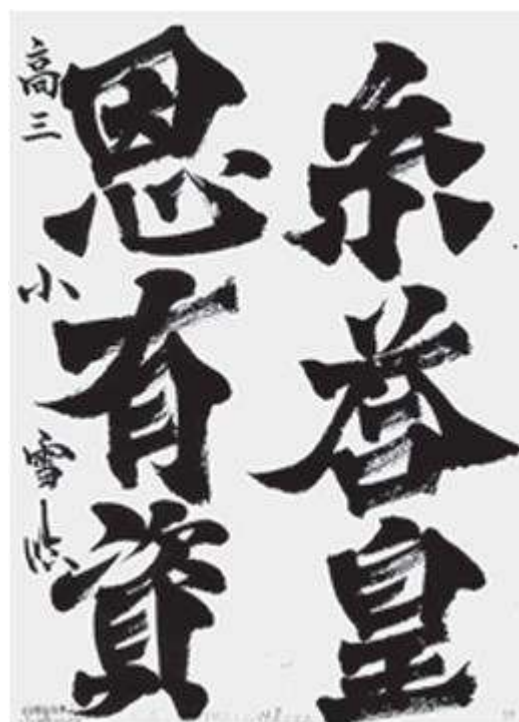 糸荅皇
恩有資
高三 小 雪